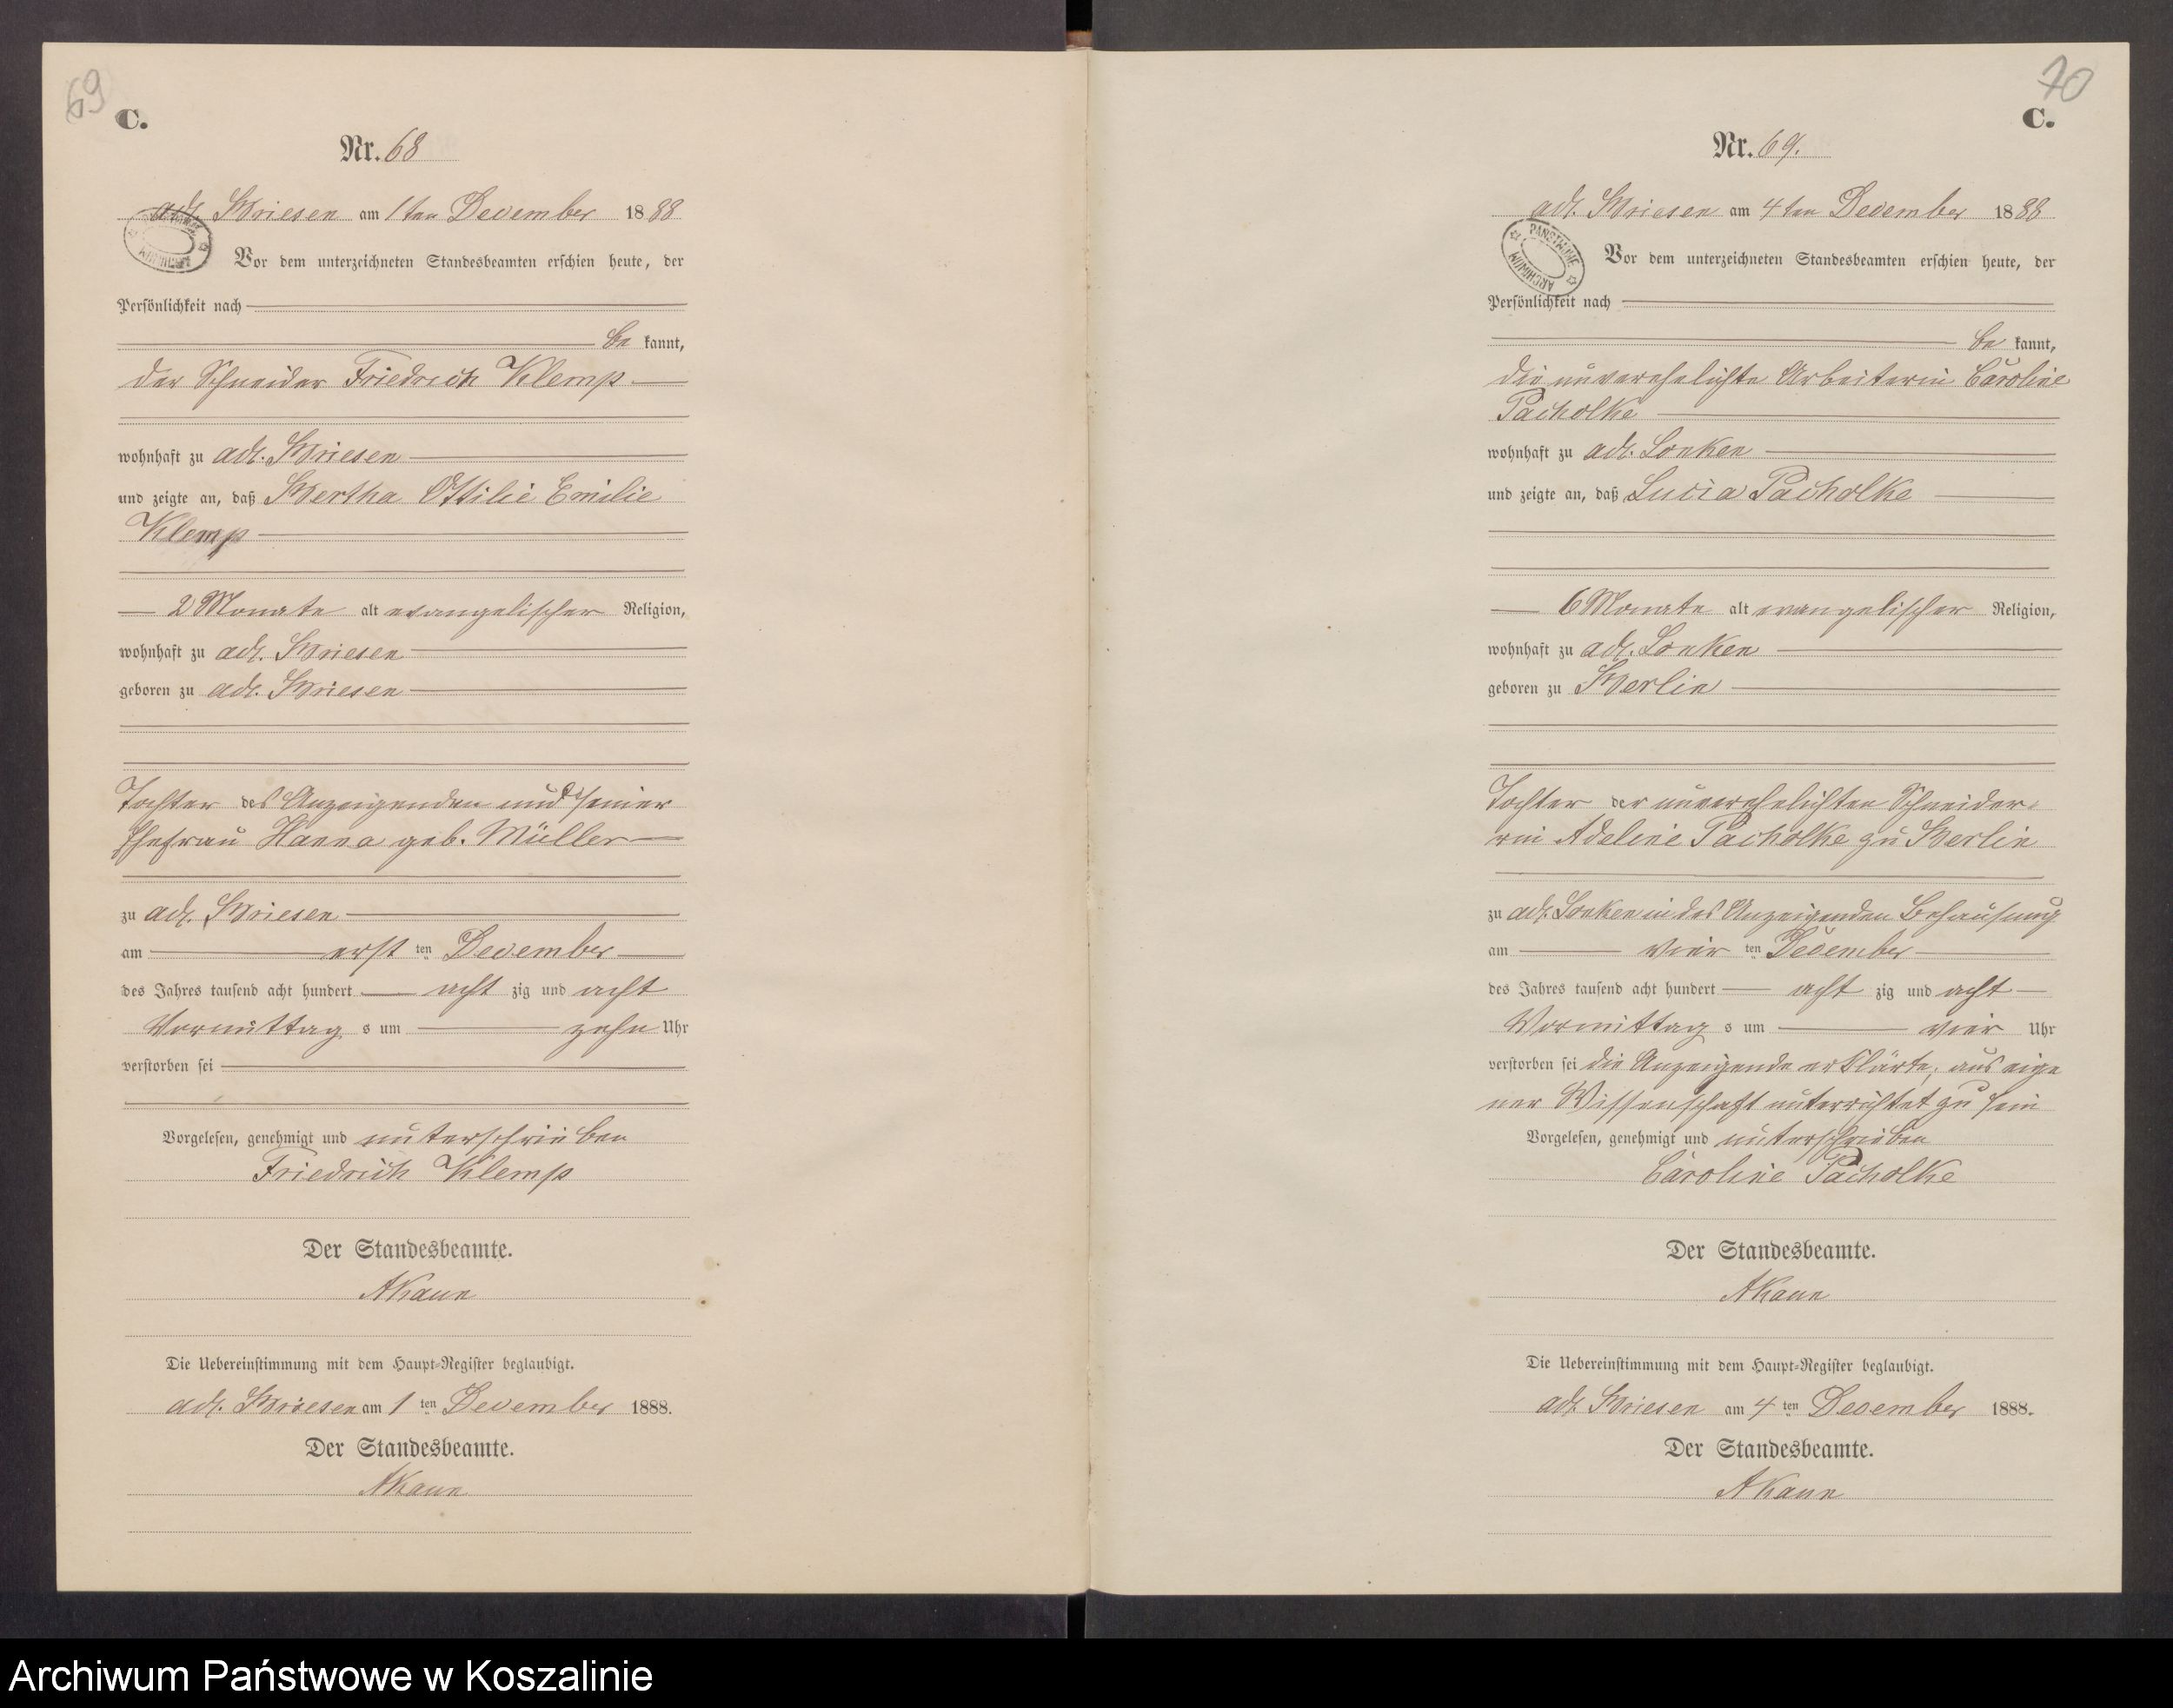 69
C.
Nr. 68
adl. Briesen am 1ten December 1888
Vor dem unterzeichneten Standesbeamten erschien heute, der
Persönlichkeit nach
be kannt,
der Schneider Friedrich Klemp
wohnhaft zu adl. Briesen
und zeigte an, daß Bertha Ottilie Emilie
Klemp
2 Monate alt evangelischer Religion,
wohnhaft zu adl. Briesen
geboren zu adl. Briesen
Tochter des Anzeigenden und seiner
Ehefrau Hanna geb. Müller
zu adl. Briesen
am erst ten December
des Jahres tausend acht hundert acht zig und acht
Vormittag s um zehn Uhr
verstorben sei
Vorgelesen, genehmigt und unterschrieben
Friedrich Klemp
Der Standesbeamte.
AKaun
Die Uebereinstimmung mit dem Haupt-Register beglaubigt.
adl. Briesen am 1 ten December 1888.
Der Standesbeamte.
AKaun
70
C.
Nr. 69.
adl. Briesen am 4ten December 1888
PAŃSTWOWE
ARCHIWUM
Vor dem unterzeichneten Standesbeamten erschien heute, der
Persönlichkeit nach
be kannt,
die unverehelichte Arbeiterin Caroline
Pacholke
wohnhaft zu adl. Lonken
und zeigte an, daß Lucia Pacholke
6 Monate alt evangelischer Religion,
wohnhaft zu adl. Lonken
geboren zu Berlin
Tochter der unverehelichten Schneider-
rin Adeline Pacholke zu Berlin
zu adl. Lonken in des Anzeigenden Behausung
am vier ten December
des Jahres tausend acht hundert acht zig und acht
Vormittag s um vier Uhr
verstorben sei die Anzeigende erklärte, aus eige
ner Wissenschaft unterrichtet zu sein
Vorgelesen, genehmigt und unterschrieben
Caroline Pacholke
Der Standesbeamte.
AKaun
Die Uebereinstimmung mit dem Haupt-Register beglaubigt.
adl. Briesen am 4 ten December 1888.
Der Standesbeamte.
AKaun
Archiwum Państwowe w Koszalinie